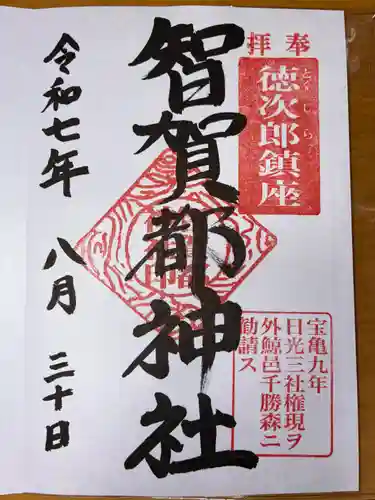 奉拝
とくじら
徳次郎鎮座
智賀都神社
宝亀九年
日光三社権現ヲ
外鯨邑千勝森ニ
勧請ス
令和七年 八月 三十日